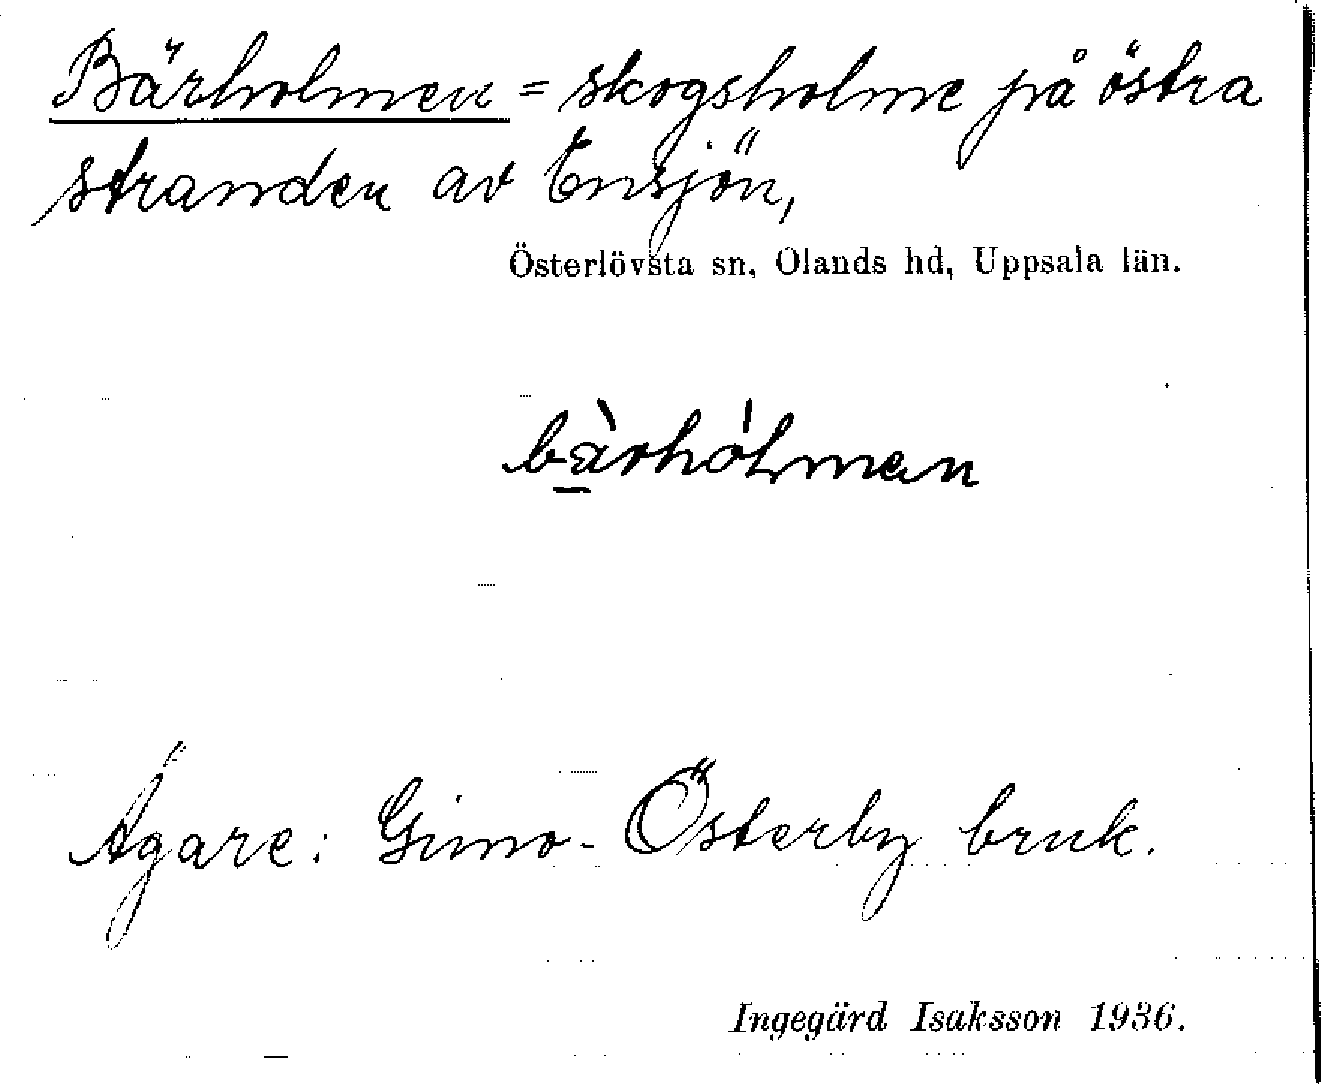 Bärholmen = skogsholme på östra
stranden av Ensjön,
Österlövsta sn, Olands hd, Uppsala län.
bàrhólman
Ägare: Gimo-Österby bruk.
Ingegärd Isaksson 1936.